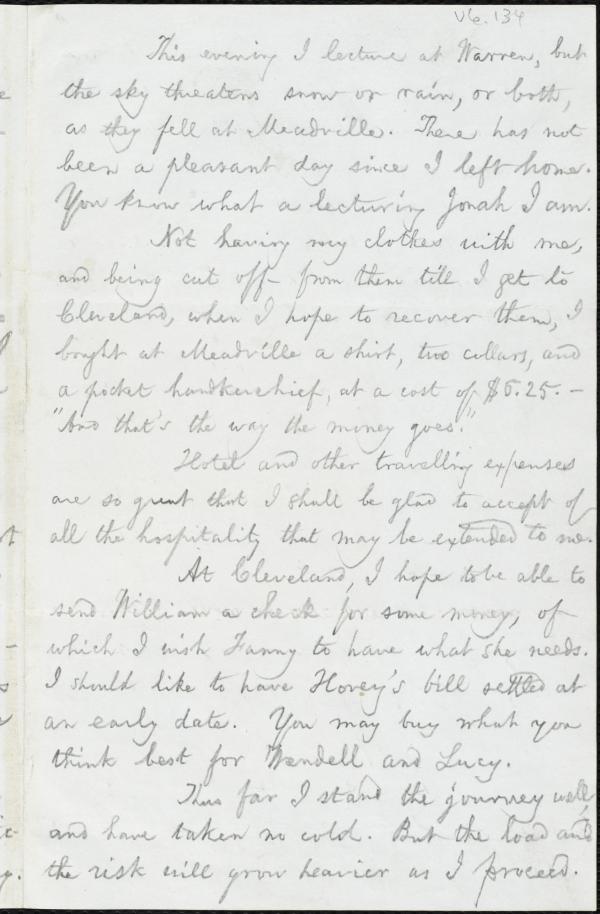 V6.134
This evening I lecture at Warren, but
the sky threatens snow or rain, or both,
as they fell at Meadville. There has not
been a pleasant day since I left home.
You know what a lecturing Jonah I am.
Not having my clothes with me,
and being cut off from them till I get to
Cleveland, when I hope to recover them, I
bought at Meadville a shirt, two collars, and
a pocket handkerchief, at a cost of $5.25. –
"And that's the way the money goes."
Hotel and other travelling expenses
are so great that I shall be glad to accept of
all the hospitality that may be extended to me.
At Cleveland, I hope to be able to
send William a check for some money, of
which I wish Fanny to have what she needs.
I should like to have Hovey's bill settled at
an early date. You may buy what you
think best for Wendell and Lucy.
Thus far I stand the journey well,
and have taken no cold. But the load and
the risk will grow heavier as I proceed.